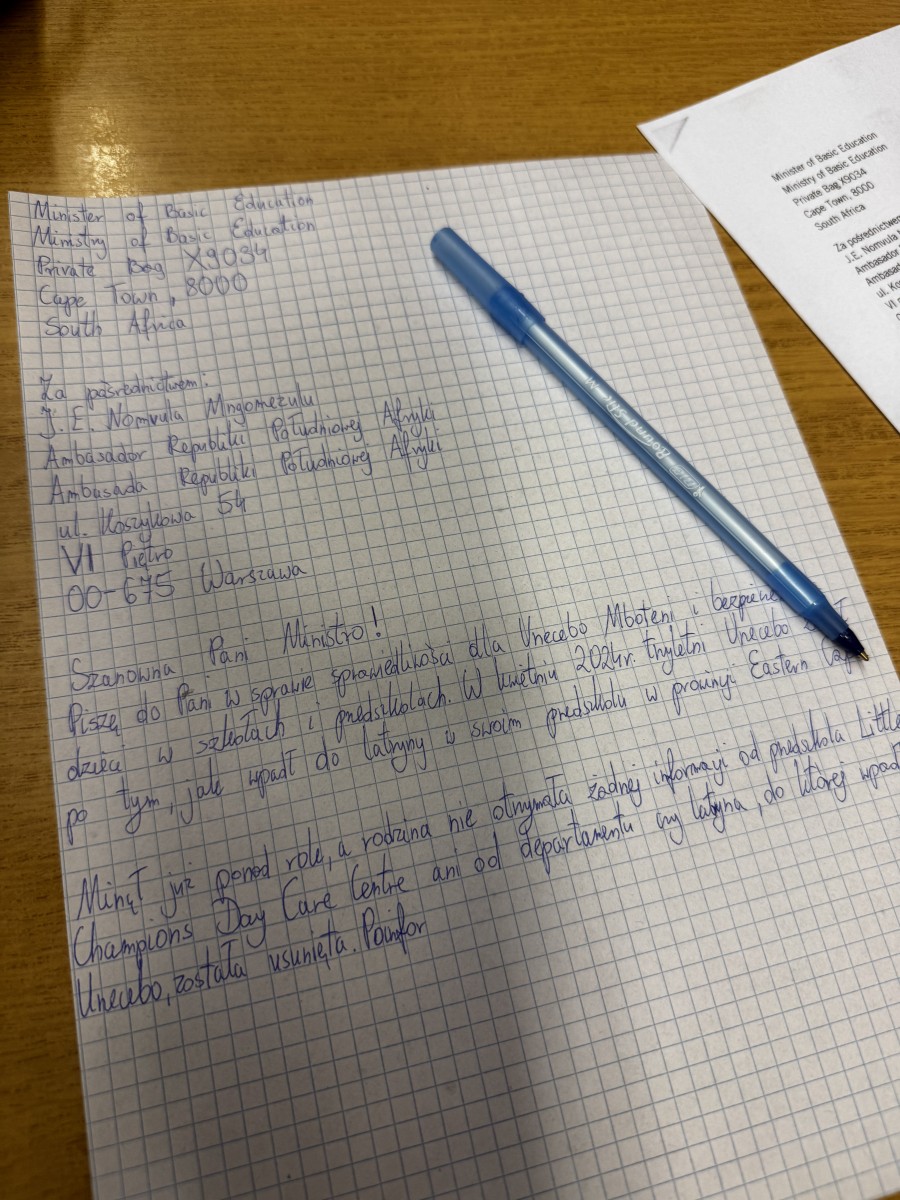 Minister of Basic Education
Ministry of Basic Education
Private Bag X9034
Cape Town, 8000
South Africa
Za pośrednictwem:
J.E. Nomvula Mngomezulu
Ambasador Republiki Południowej Afryki
Ambasada Republiki Południowej Afryki
ul. Koszykowa 54
VI Piętro
00-675 Warszawa
Szanowna Pani Ministro!
Piszę do Pani w sprawie sprawiedliwości dla Unecebo Mboteni i
dzieci w szkołach i przedszkolach. W kwietniu 2024r. trzyletni Unecebo
po tym, jak wpadł do latryny w swoim przedszkolu w prowincji Eastern Cape
Minął już ponad rok, a rodzina nie otrzymała żadnej informacji od przedszkola Little
Champions Day Care Centre ani od departamentu czy latryna, do której wpadł
Unecebo, została usunięta. Poinfor
Minister of Basic Education
Ministry of Basic Education
Private Bag X9034
Cape Town, 8000
South Africa
Za pośrednictwem
J.E. Nomvula
Ambasador
Ambasad
ul. Ko
VI
Round Stic M